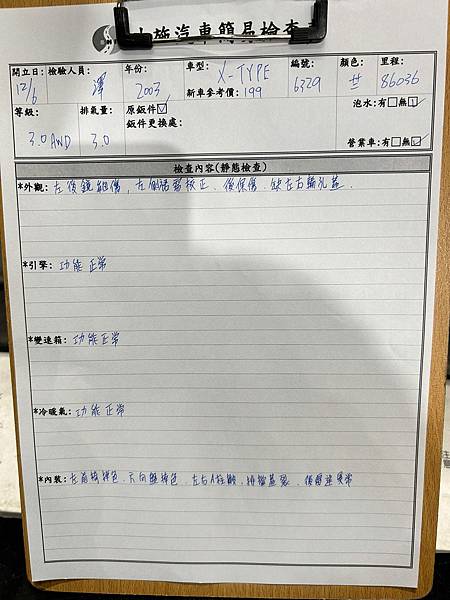 施汽車簡易檢查
開立日: 檢驗人員: 年份: 車型: X-TYPE 編號: 顏色: 里程:
12/6 澤 2003 新車參考價: 199 6329 86036
等級: 排氣量: 原鈑件☑ 泡水:有□無☑
3.0 AWD 3.0 鈑件更換處:
營業車:有□無☑
檢查內容(靜態檢查)
*外觀: 左後鏡 傷, 左側 校正. 後保傷. 缺左右輪孔蓋.
*引擎: 功能正常
*變速箱: 功能正常
*冷暖氣: 功能正常
*內裝: 左前椅掉色. 方向盤掉色. 左右A柱 . 排檔蓋裂.